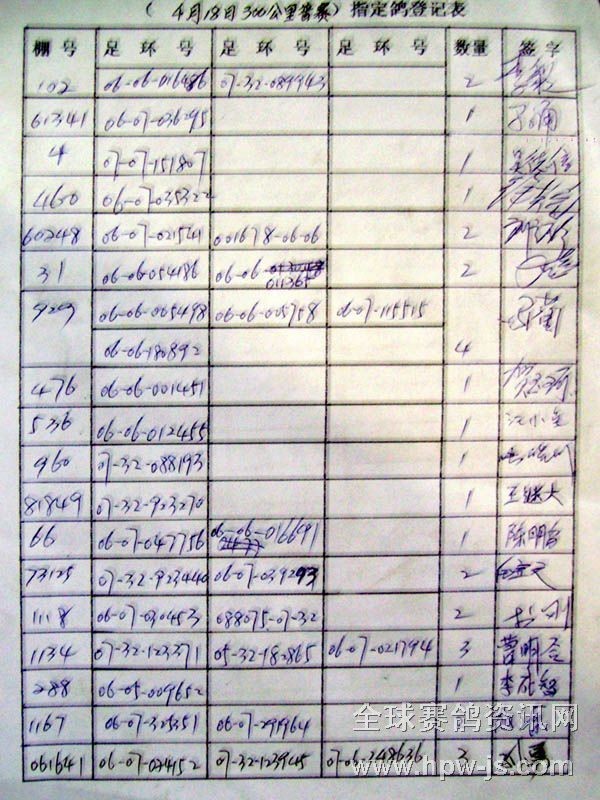 ( 4月18日300公里普赛) 指定鸽登记表
棚号 足环号 足环号 足环号 数量 签字
102 06-06-016486 07-32-089943 2
61341 06-07-036295 1
4 07-07-151807 1
460 06-07-035322 1
60248 06-07-021541 001678-06-06 2
31 06-06-054186 06-06- 2
011365
929 06-06-005498 06-06-005758 06-07-115515
06-06-180892 4
476 06-06-001451 1
536 06-06-012455 1 江小金
960 07-32-088193 1
81849 07-32-923270 1 王继大
66 06-07-047756 06-06-016691 1 陈明富
73125 07-32-923440 06-07-039293 2
1118 06-07-030453 088075-07-32 2
1134 07-32-123371 05-32-182865 06-07-021794 3
288 06-05-009652 1
1167 06-07-325351 06-07-291964
061641 06-07-024152 07-32-123945 07-06-368636 3
全球赛鸽资讯网
www.hpw-js.com